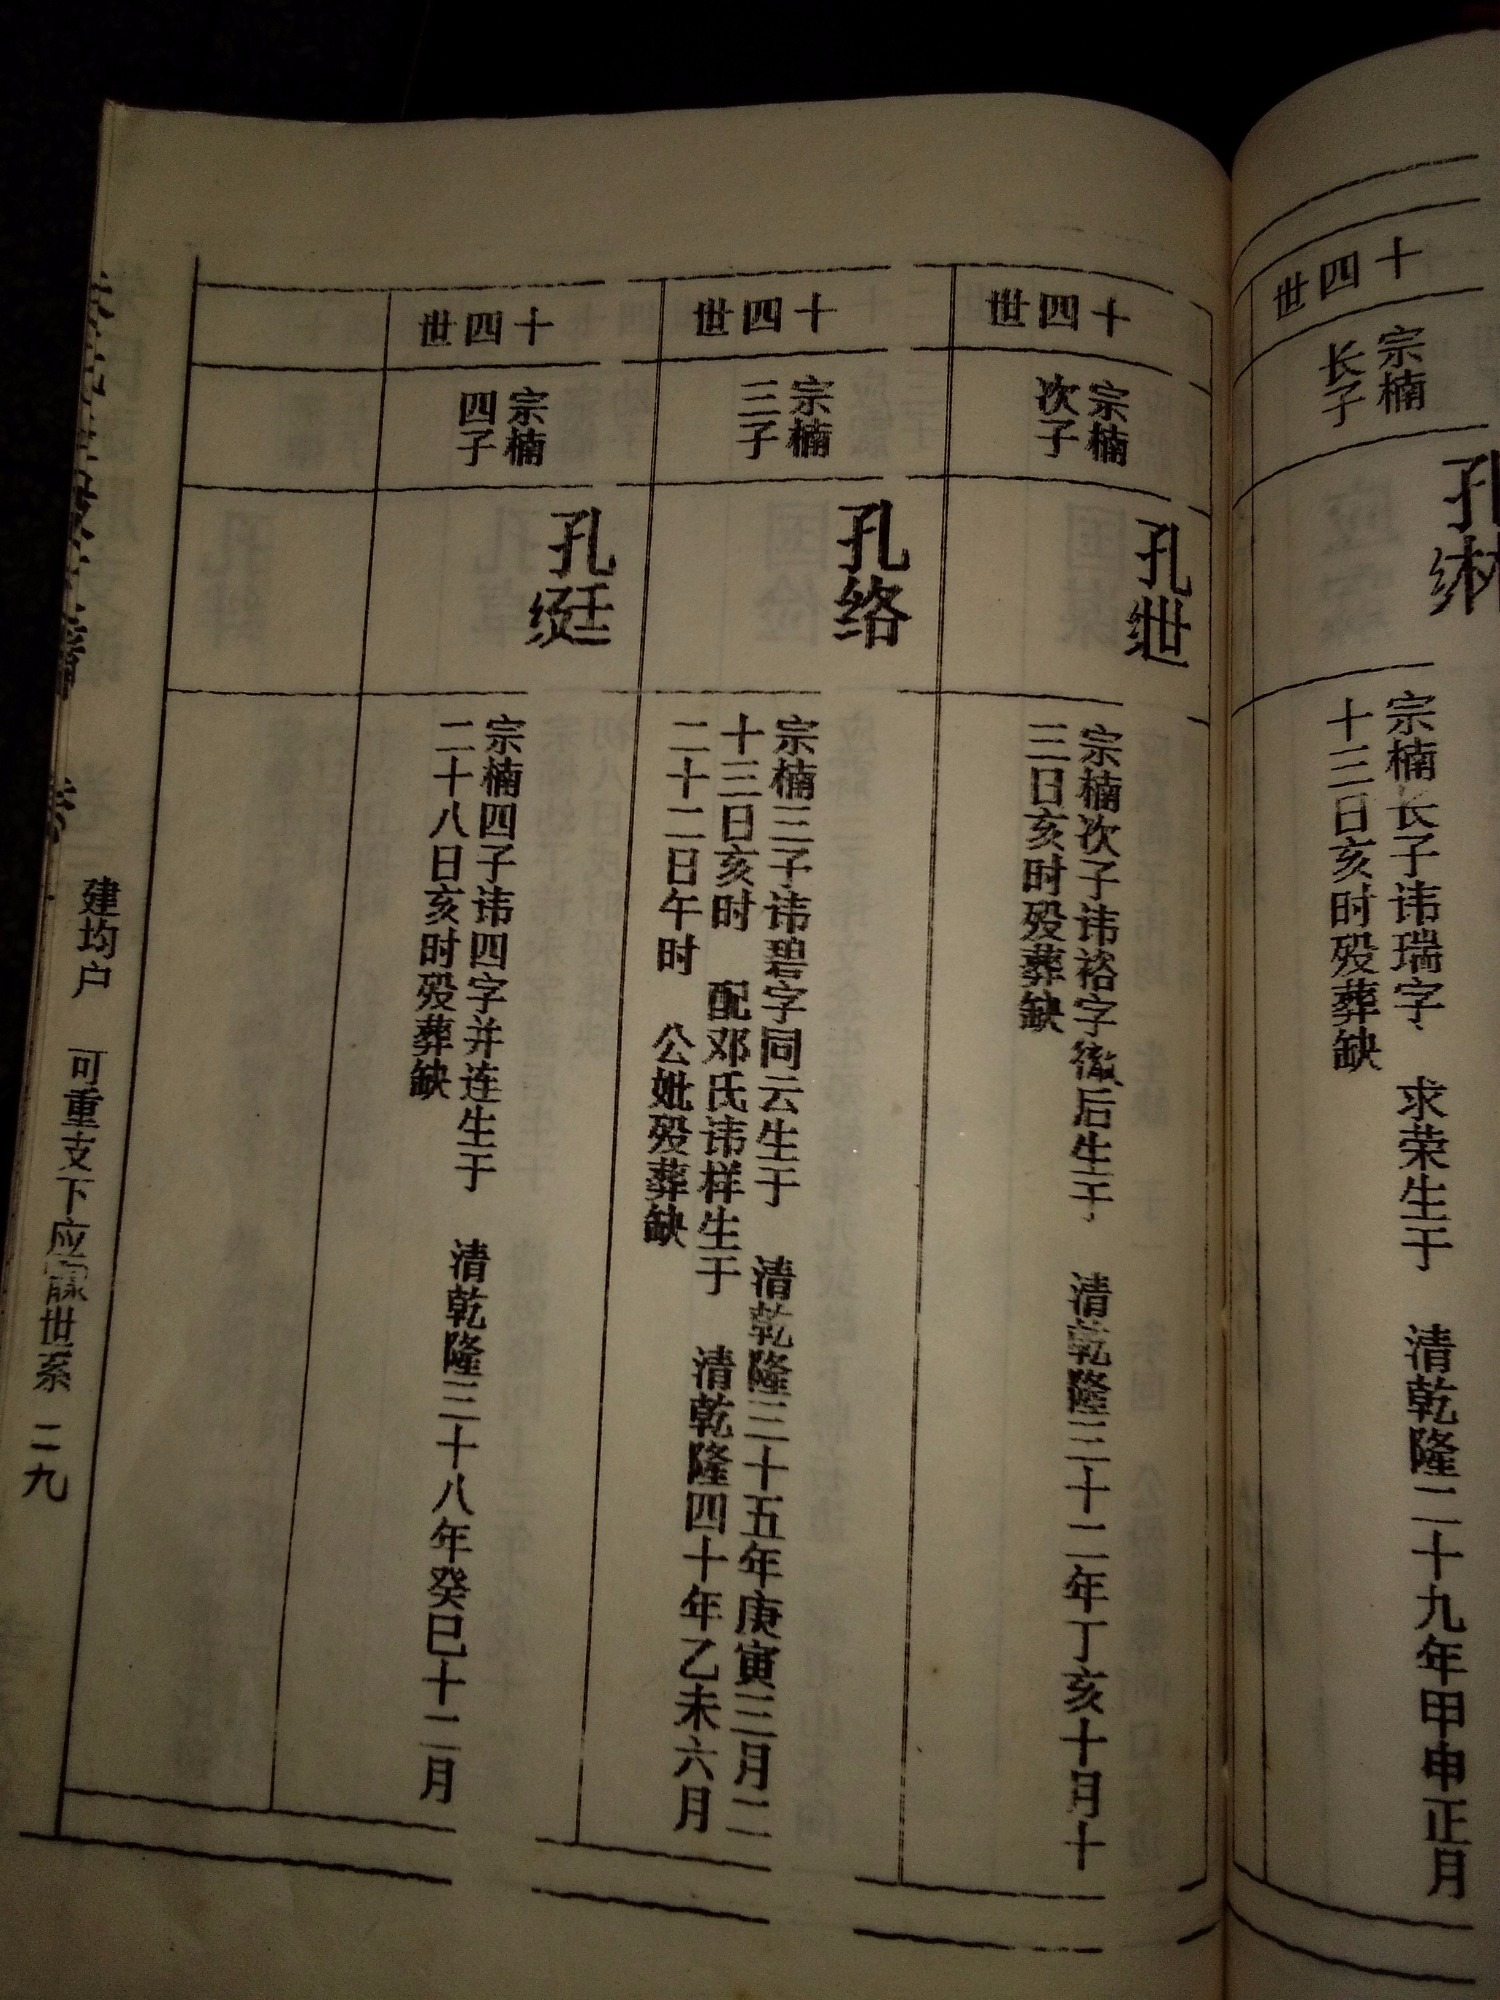 十四世
宗楠
长子
孔綝
宗楠长子讳瑞字 求荣生于 清乾隆二十九年甲申正月
十三日亥时殁葬缺
十四世
宗楠
次子
孔绁
宗楠次子讳裕字徽后生于 清乾隆三十二年丁亥十月十
三日亥时殁葬缺
十四世
宗楠
三子
孔络
宗楠三子讳碧字同云生于 清乾隆三十五年庚寅三月二
十三日亥时 配邓氏讳样生于 清乾隆四十年乙未六月
二十二日午时 公妣殁葬缺
十四世
宗楠
四子
孔綎
宗楠四子讳四字并连生于 清乾隆三十八年癸巳十二月
二十八日亥时殁葬缺
建均户 可重支下应 世系 二九